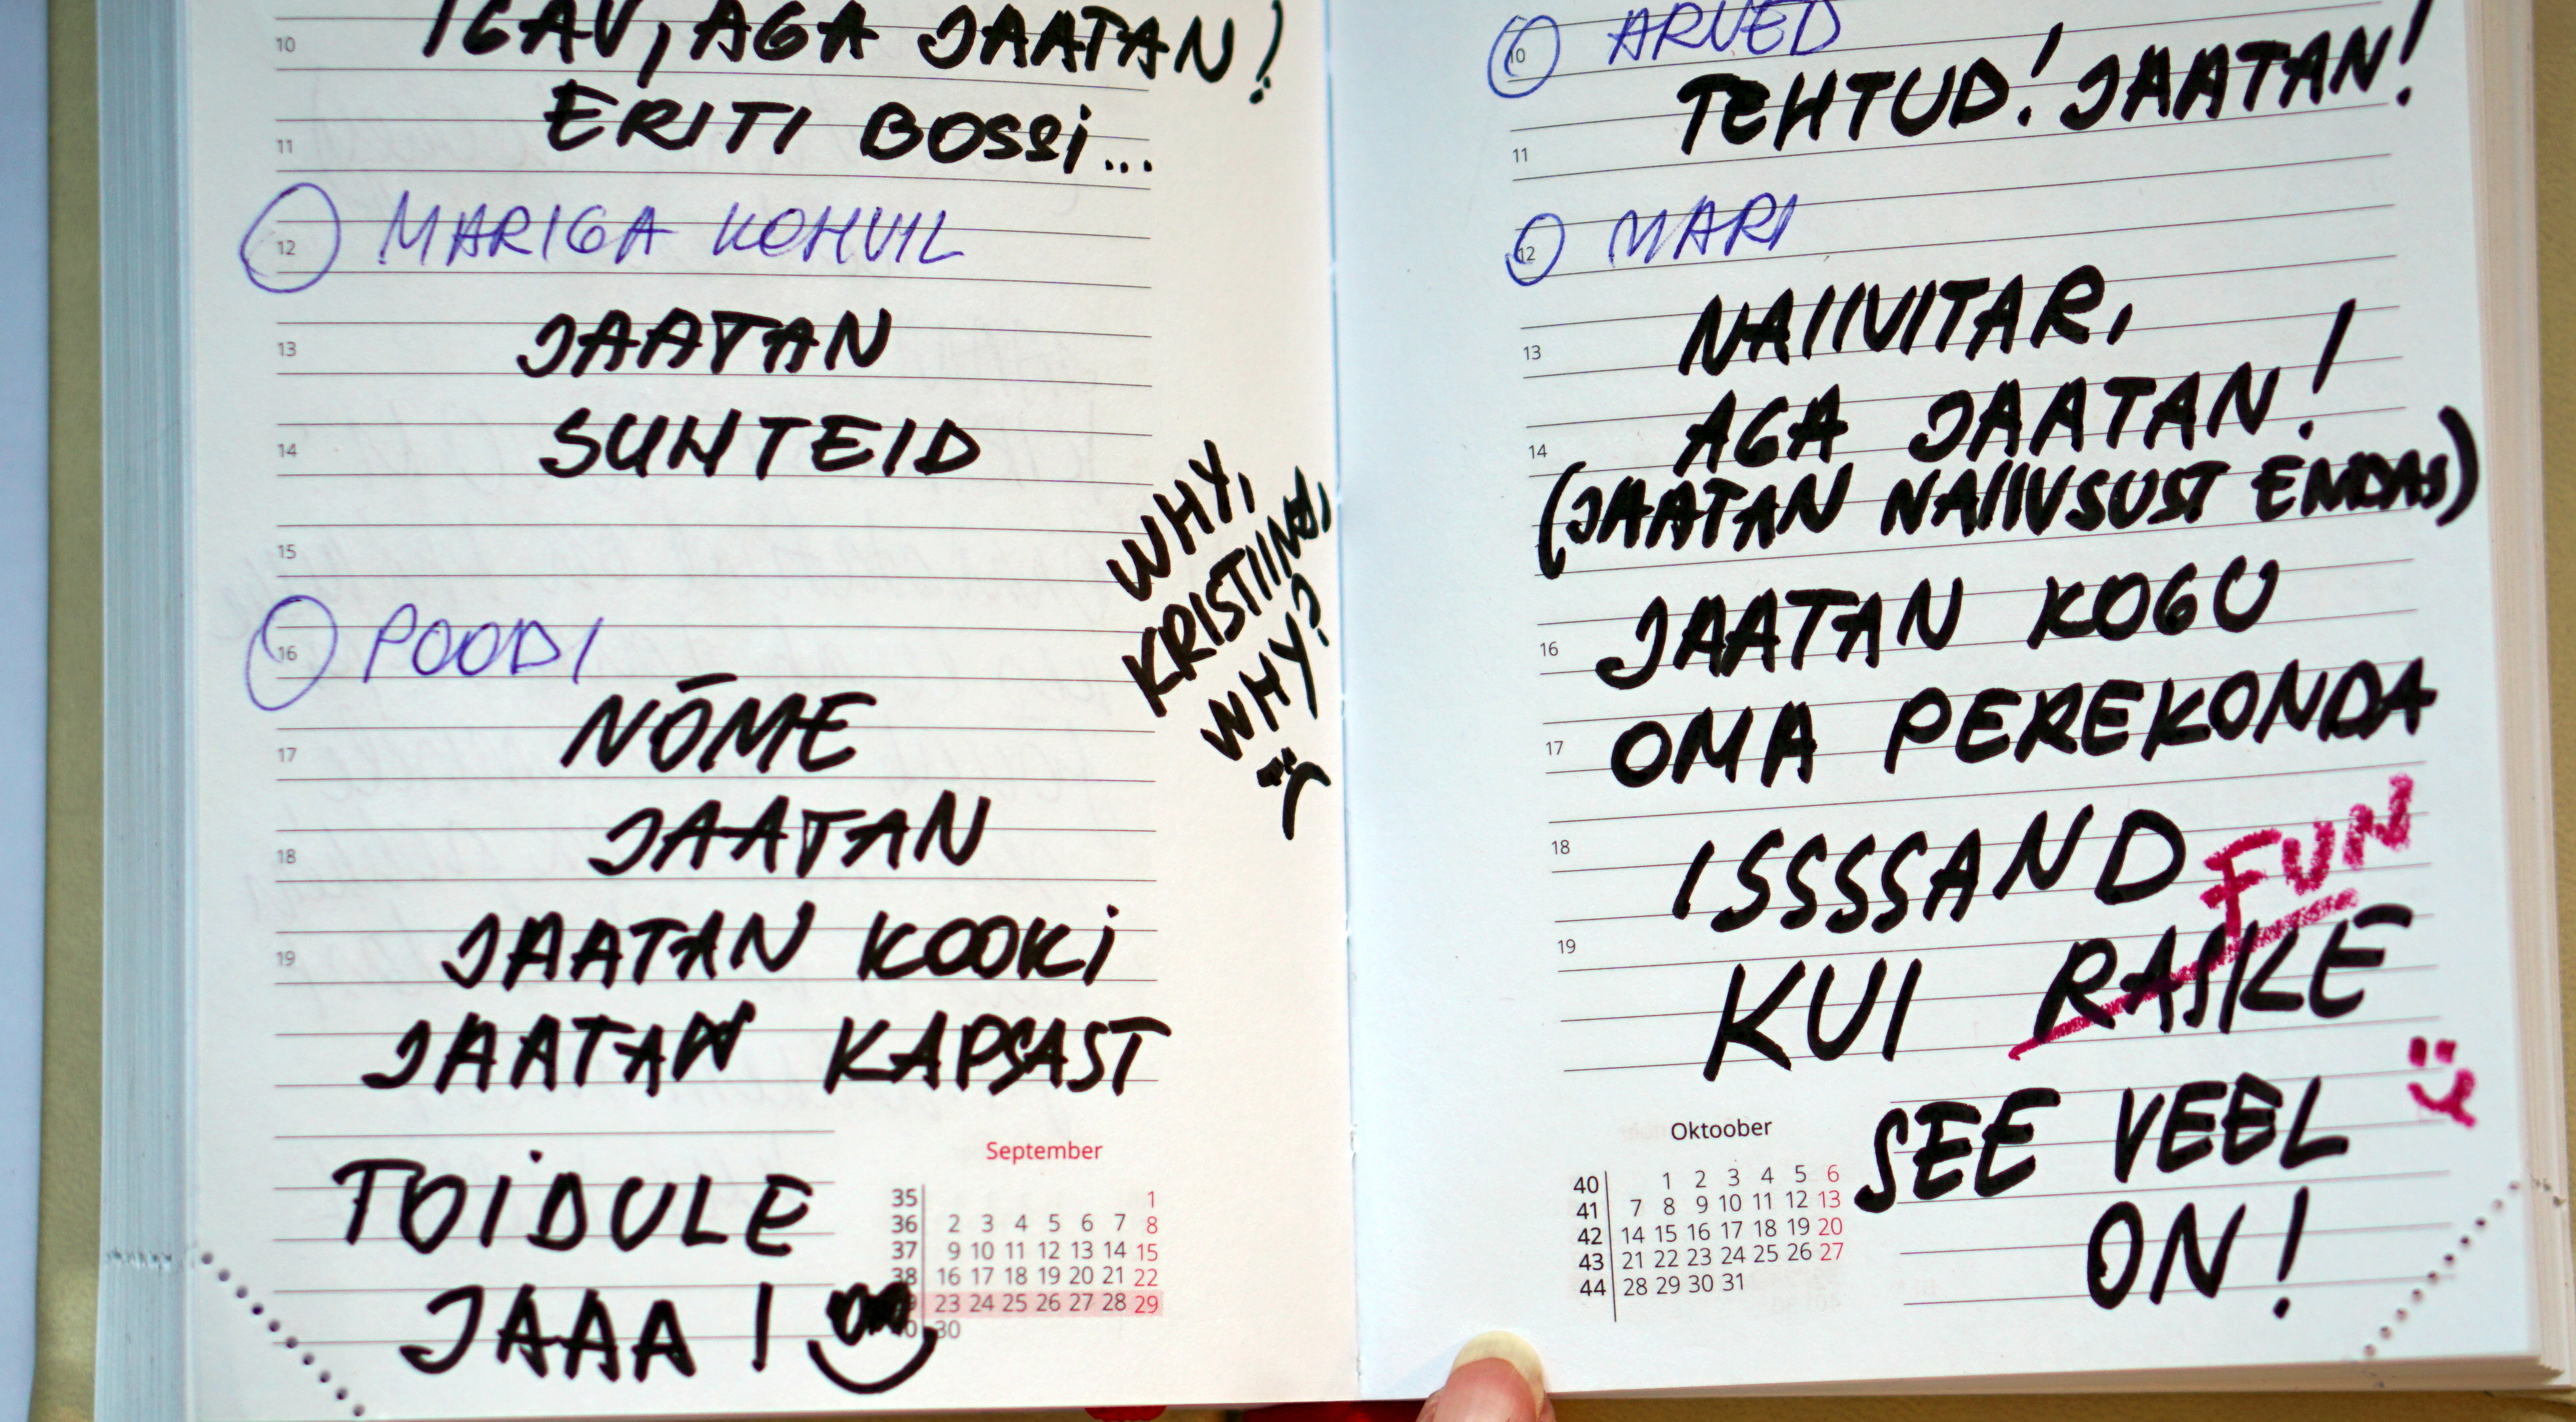 10 IGAV, AGA JAATAN!
11 ERITI BOSSi...
12 MARIGA KOHVIL
13 JAATAN
14 SUHTEID
15
16 POODI
NÕME
17
18 JAATAN
19 JAATAN KOOKi
JAATAN KAPSAST
TOiDULE
JAAA!
September
35 1
36 2 3 4 5 6 7 8
37 9 10 11 12 13 14 15
38 16 17 18 19 20 21 22
39 23 24 25 26 27 28 29
40 30
WHY,
KRISTIINA,
WHY?
10 ARVED
TEHTUD! JAATAN!
11
12 MARI
13 NAIIVITAR,
14 AGA JAATAN!
(JAATAN NAIIVSUST ENDAS)
16 JAATAN KOGU
17 OMA PEREKONDA
18 ISSSSAND
FUN
19 KUI RASKE
SEE VEEL
ON!
Oktoober
40 1 2 3 4 5 6
41 7 8 9 10 11 12 13
42 14 15 16 17 18 19 20
43 21 22 23 24 25 26 27
44 28 29 30 31